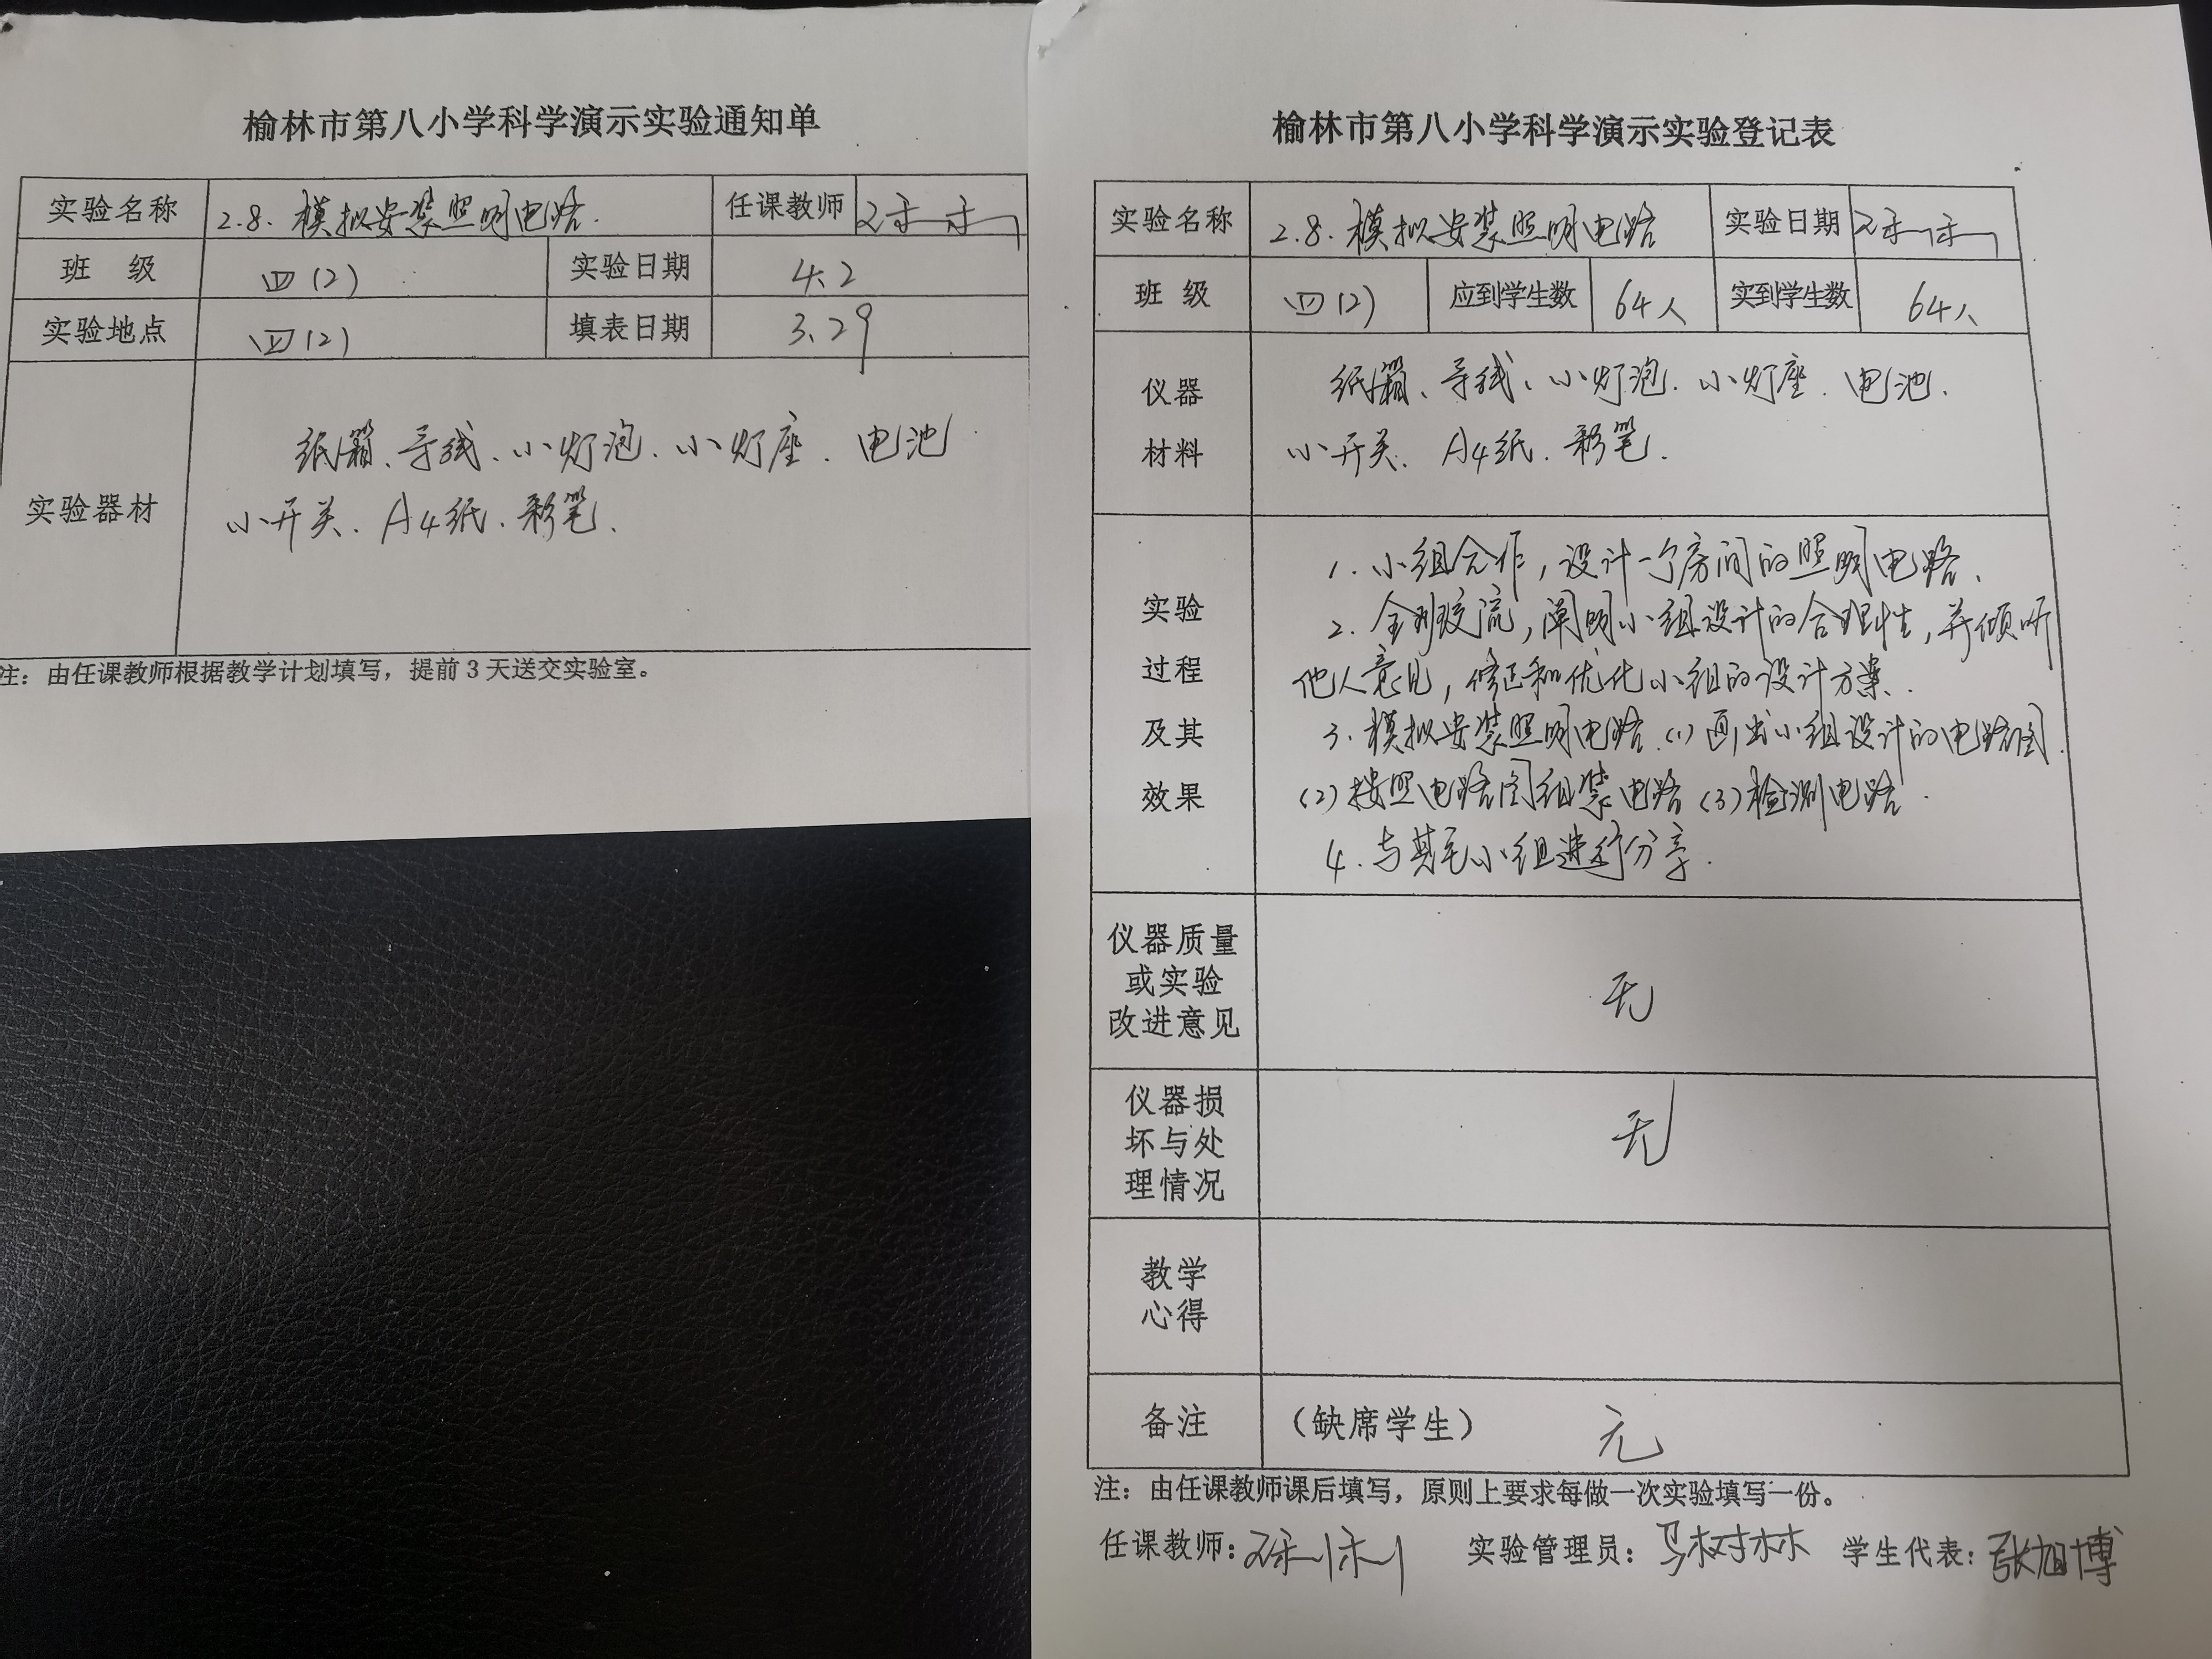 榆林市第八小学科学演示实验通知单
实验名称 2.8. 模拟安装照明电路. 任课教师
班 级 四(2) 实验日期 4.2
实验地点 四(2) 填表日期 3.29
实验器材
纸箱、导线、小灯泡、小灯座、电池
小开关、A4纸、彩笔.
注：由任课教师根据教学计划填写，提前 3 天送交实验室。
榆林市第八小学科学演示实验登记表
实验名称 2.8. 模拟安装照明电路 实验日期
班 级 四(2) 应到学生数 64人 实到学生数 64人
仪器
材料
纸箱、导线、小灯泡、小灯座、电池.
小开关、A4纸、彩笔.
实验
过程
及其
效果
1. 小组合作，设计一个房间的照明电路.
2. 全班交流，阐明小组设计的合理性，并倾听
他人意见，修正和优化小组的设计方案.
3. 模拟安装照明电路.(1)画出小组设计的电路图.
(2)按照电路图组装电路(3)检测电路.
4. 与其它小组进行分享.
仪器质量
或实验
改进意见
无
仪器损
坏与处
理情况
无
教学
心得
备注 （缺席学生） 无
注：由任课教师课后填写，原则上要求每做一次实验填写一份。
任课教师： 实验管理员：马树林 学生代表：张旭博